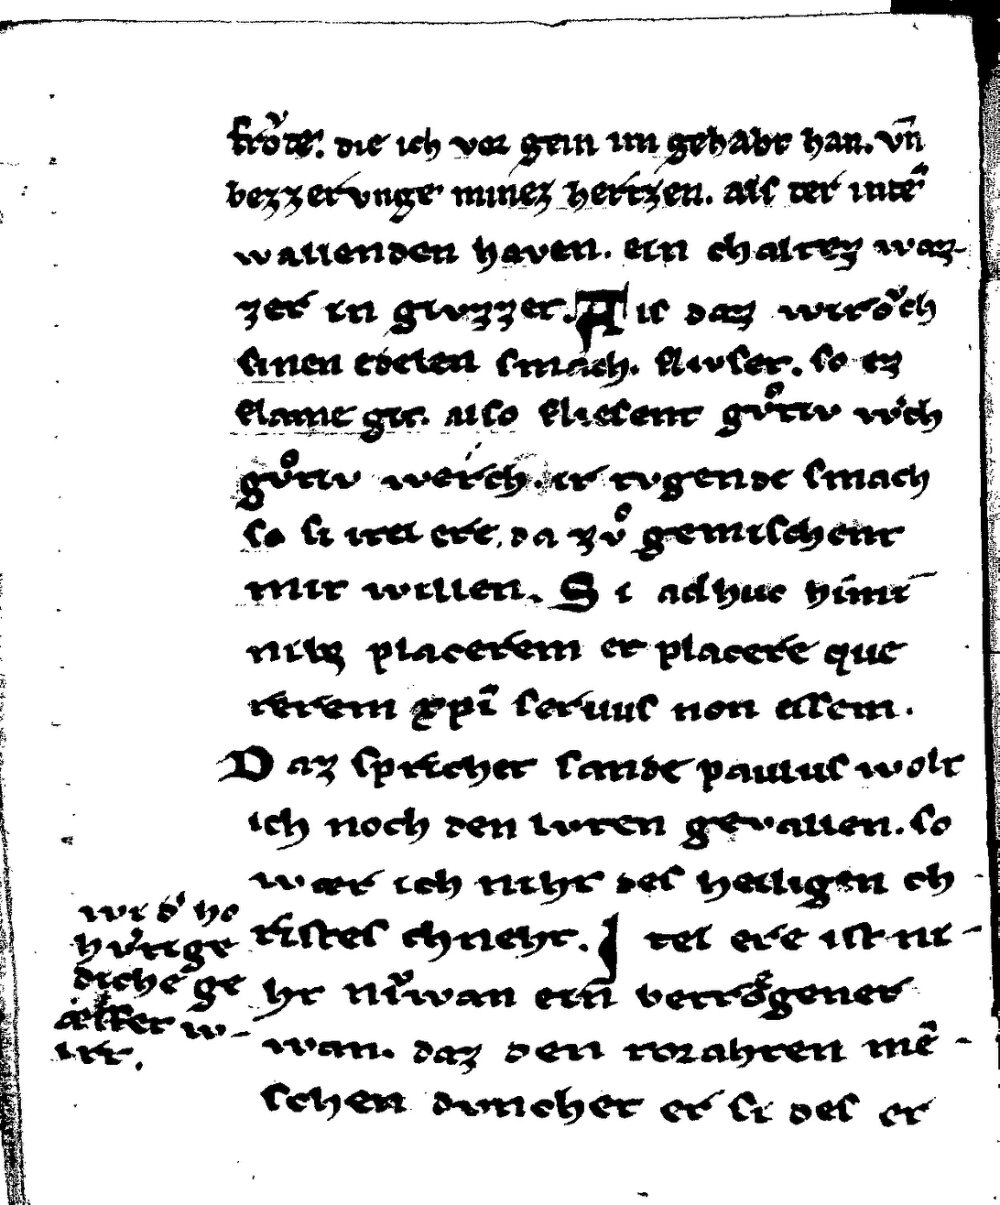 frǒte. die ich vor gein im gehabt han. vn̄
bezzervnge minez hertzen. als der in dē
wallenden haven. ein chaltez waz-
zer in givzzet. Als daz wirǒch
sinen edelen smach. fliuset. so ez
flame git. also fliesent gůtiv
gůtiv werch. ir tugende smach
so si itel ere. da zů gemischent
mit willen. Si adhuc homi
nibꝫ placerem et placere que
rerem xp̄i seruus non essem.
Daz sprichet sande paulus wolt
ich noch den luten gevallen. so
wær ich niht des heiligen ch
ristes chneht. Itel ere ist ni-
ht niwan ein betrogener
wan. daz den torahten mē-
schen dunchet er si des er
wid' ho
hvertige
diche ge